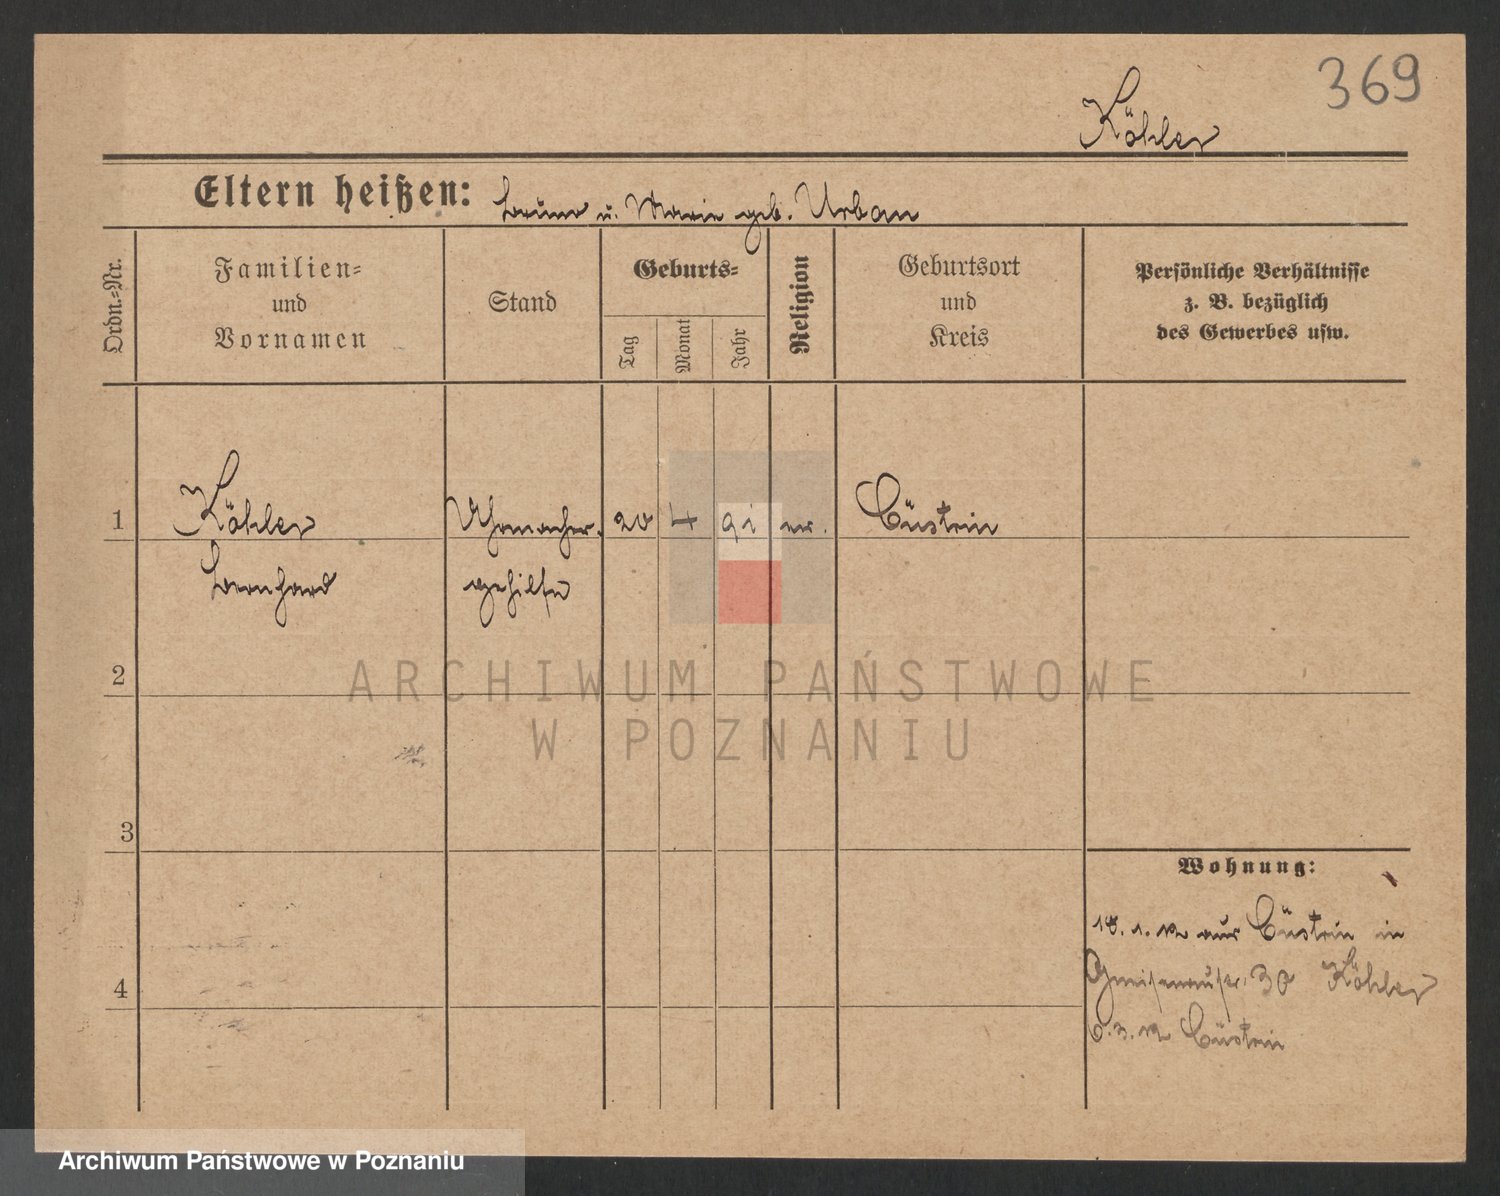 369
Köhler
Eltern heißen: Bruno u. Marie geb. Urban
Ordn.=Nr.
Familien=
und
Vornamen
Stand
Geburts=
Tag
Monat
Jahr
Religion
Geburtsort
und
Kreis
Persönliche Verhältnisse
z. B. bezüglich
des Gewerbes usw.
1 Köhler Uhrmacher- 20 4 91 ev. Cüstrin
Bernhard gehilfe
2
ARCHIWUM PAŃSTWOWE
W POZNANIU
3
Wohnung:
18. 1. 12 aus Cüstrin in
4
Gneisenaustr. 30 Köhler
6. 3. 12 Cüstrin
Archiwum Państwowe w Poznaniu